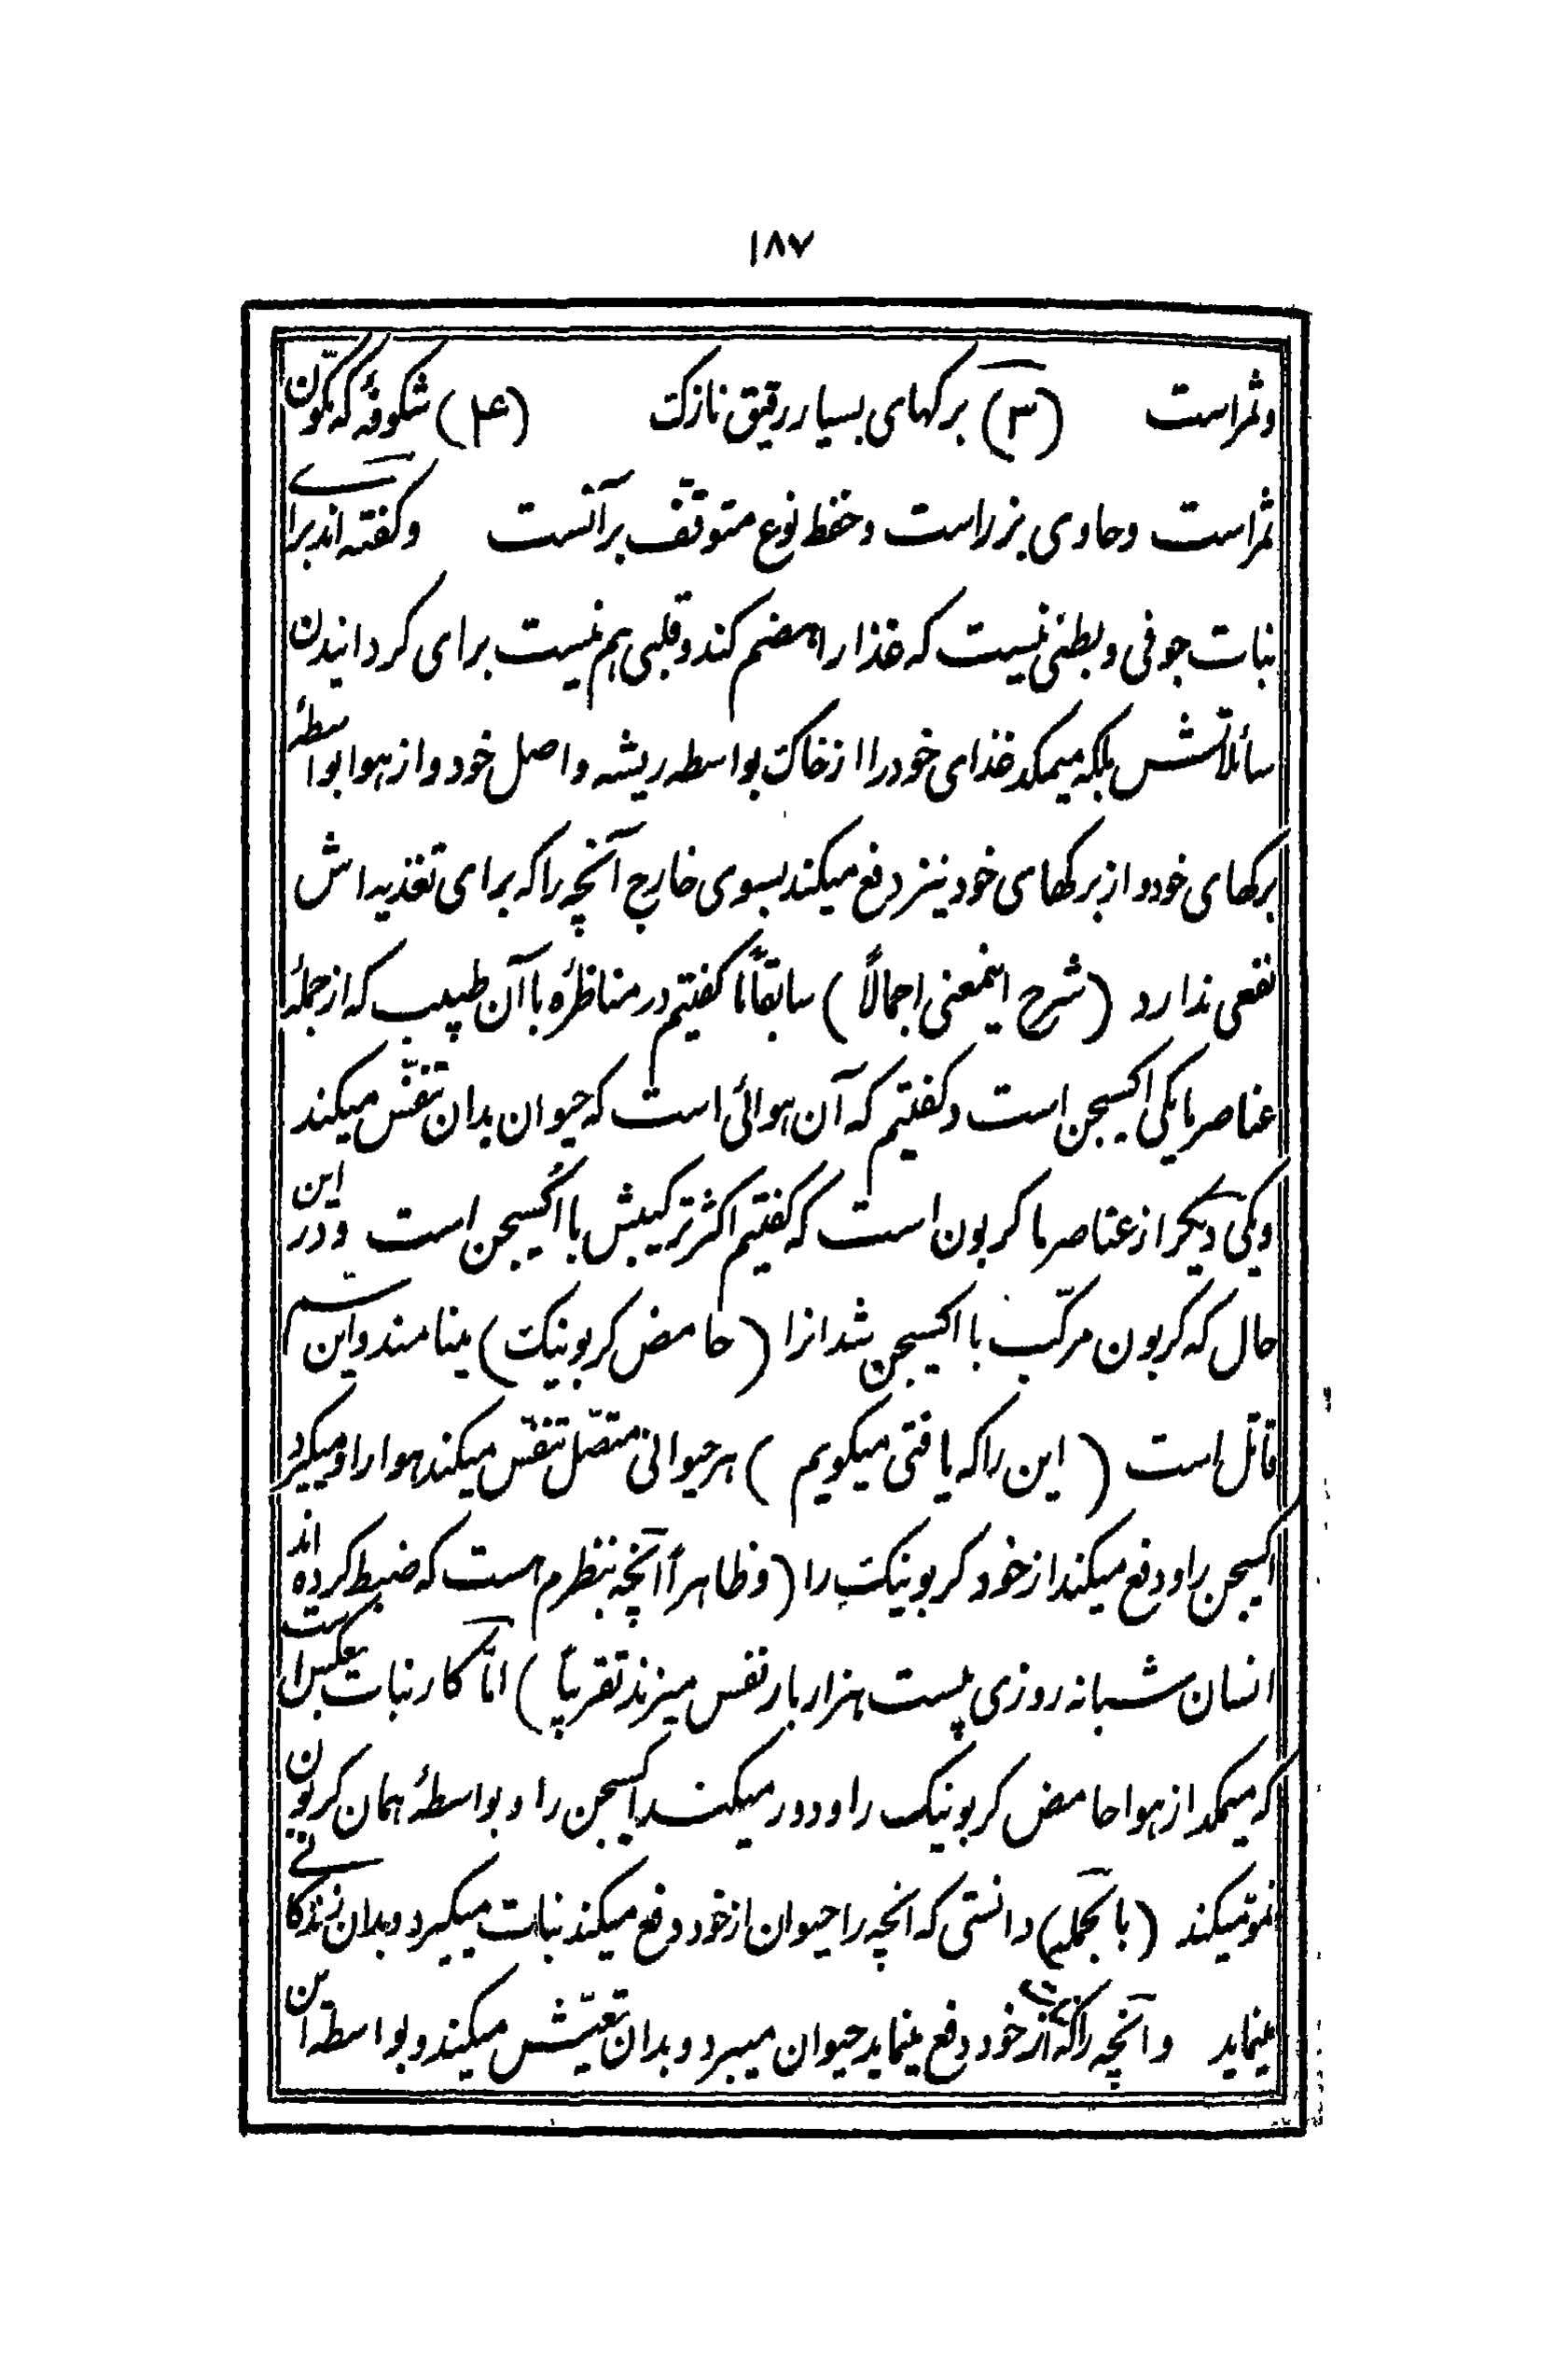 ۱۸۷
وثمر است (۳) برکهای بسیار رقیق نازک (۴) شکوفهٔ که مکوّن
ثمر است وحاوی بزر است وحفظ نوع متوقّف برآنست وکفته اند برای
نبات جوفی و بطنی نیست که غذا را هضم کند و قلبی هم نیست برای کردانیدن
سائلاتش بلکه میمکد غذای خود را از خاک بواسطه ریشه و اصل خود و از هوا بواسطهٔ
برکهای خود و از برکهای خود نیز دفع میکند بسوی خارج آنچه را که برای تغذیه اش
نفعی ندارد (شرح اینمعنی اجمالاً) سابقاً ما کفتیم در مناظرهٔ با آن طبیب که از جملهٔ
عناصر ما یکی اکسیجن است و کفتیم که آن هوائی است که حیوان بدان تنفّس میکند
ویکی دیکر از عناصر ما کربون است که کفتیم اکثر ترکیبش با اکسیجن است ودر این
حال که کربون مرکّب با اکسیجن شد انرا (حامض کربونیک) مینامند واین سمّ
قاتل است (این را که یافتی میکویم) هر حیوانی متصّل تنفّس میکند هوا را و میکیرد
اکسیجن را و دفع میکند از خود کربونیک را (وظاهراً آنچه بنظرم هست که ضبط کرده اند
انسان شبانه روزی بیست هزار بار نفس میزند تقریباً) امّا کار نبات بعکس است
که میمکد از هوا حامض کربونیک را و دور میکند اکسجن را و بواسطهٔ همان کربون
نموّ میکند (بالجمله) دانستی که انچه را حیوان از خود دفع میکند نبات میکیرد و بدان زندکانی
مینماید وانچه را که نبات از خود دفع مینماید حیوان میبرد و بدان تعیّش میکند و بواسطه این